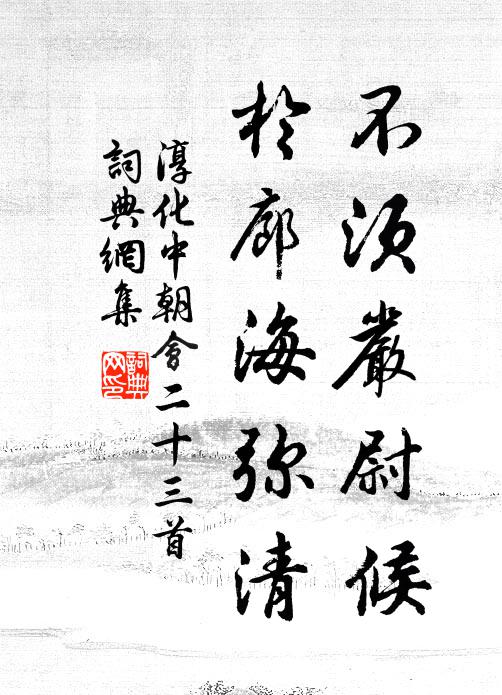 不須嚴尉候
於廊海弥清
淳化中朝會二十三首
詞典網集
詞典网印